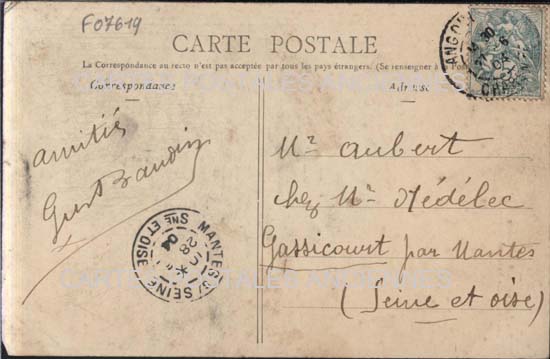 F07619
CARTE POSTALE
La Correspondance au recto n'est pas acceptée par tous les pays étrangers. (Se renseigner à la Poste
Correspondance
Adresse
CARTES POSTALES ANCIENNES
amitiés
Gust Baudin
Mr Aubert
chez Mr Médélec
Gassicourt par Mantes
(Seine et oise)
ANGOU
CHAR
MANTES S/ SEINE
SNE ET OISE
28
04
CARTES POSTALES ANCIENNES